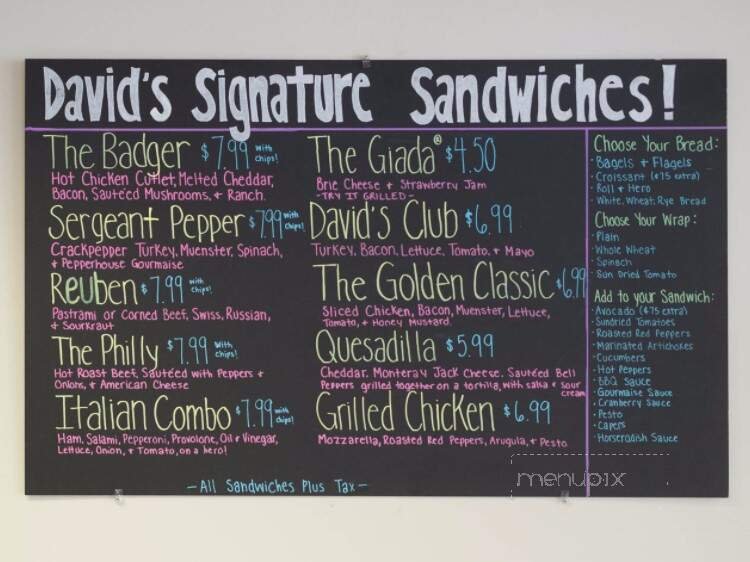 David's Signature Sandwiches!
The Badger $7.99 with chips!
Hot Chicken Cutlet, Melted Cheddar,
Bacon, Sauteéd Mushrooms, + Ranch.
Sergeant Pepper $7.99 with chips!
Crackpepper Turkey, Muenster, Spinach,
+ Pepperhouse Gourmaise
Reuben $7.99 with chips!
Pastrami or Corned Beef, Swiss, Russian,
+ Sourkraut
The Philly $7.99 with chips!
Hot Roast Beef, Sauteéd with Peppers +
Onions, + American Cheese
Italian Combo $7.99 with chips!
Ham, Salami, Pepperoni, Provolone, Oil + Vinegar,
Lettuce, Onion, + Tomato, on a hero!
The Giada® $4.50
Brie Cheese + Strawberry Jam
-TRY IT GRILLED-
David's Club $6.99
Turkey, Bacon, Lettuce, Tomato, + Mayo
The Golden Classic $6.99
Sliced Chicken, Bacon, Muenster, Lettuce,
Tomato, + Honey Mustard.
Quesadilla $5.99
Cheddar, Monteray Jack Cheese, Sauteéd Bell
Peppers grilled together on a tortilla, with salsa + sour
cream
Grilled Chicken $6.99
Mozzarella, Roasted Red Peppers, Arugula, + Pesto
Choose Your Bread:
· Bagels + Flagels
· Croissant ($.75 extra)
· Roll + Hero
· White, Wheat, Rye Bread
Choose Your Wrap:
· Plain
· Whole Wheat
· Spinach
· Sun Dried Tomato
Add to your Sandwich:
· Avocado ($.75 extra)
· Sundried Tomatoes
· Roasted Red Peppers
· Marinated Artichokes
· Cucumbers
· Hot Peppers
· BBQ Sauce
· Gourmaise Sauce
· Cranberry Sauce
· Pesto
· Capers
· Horseradish Sauce
- All Sandwiches Plus Tax -
menupix